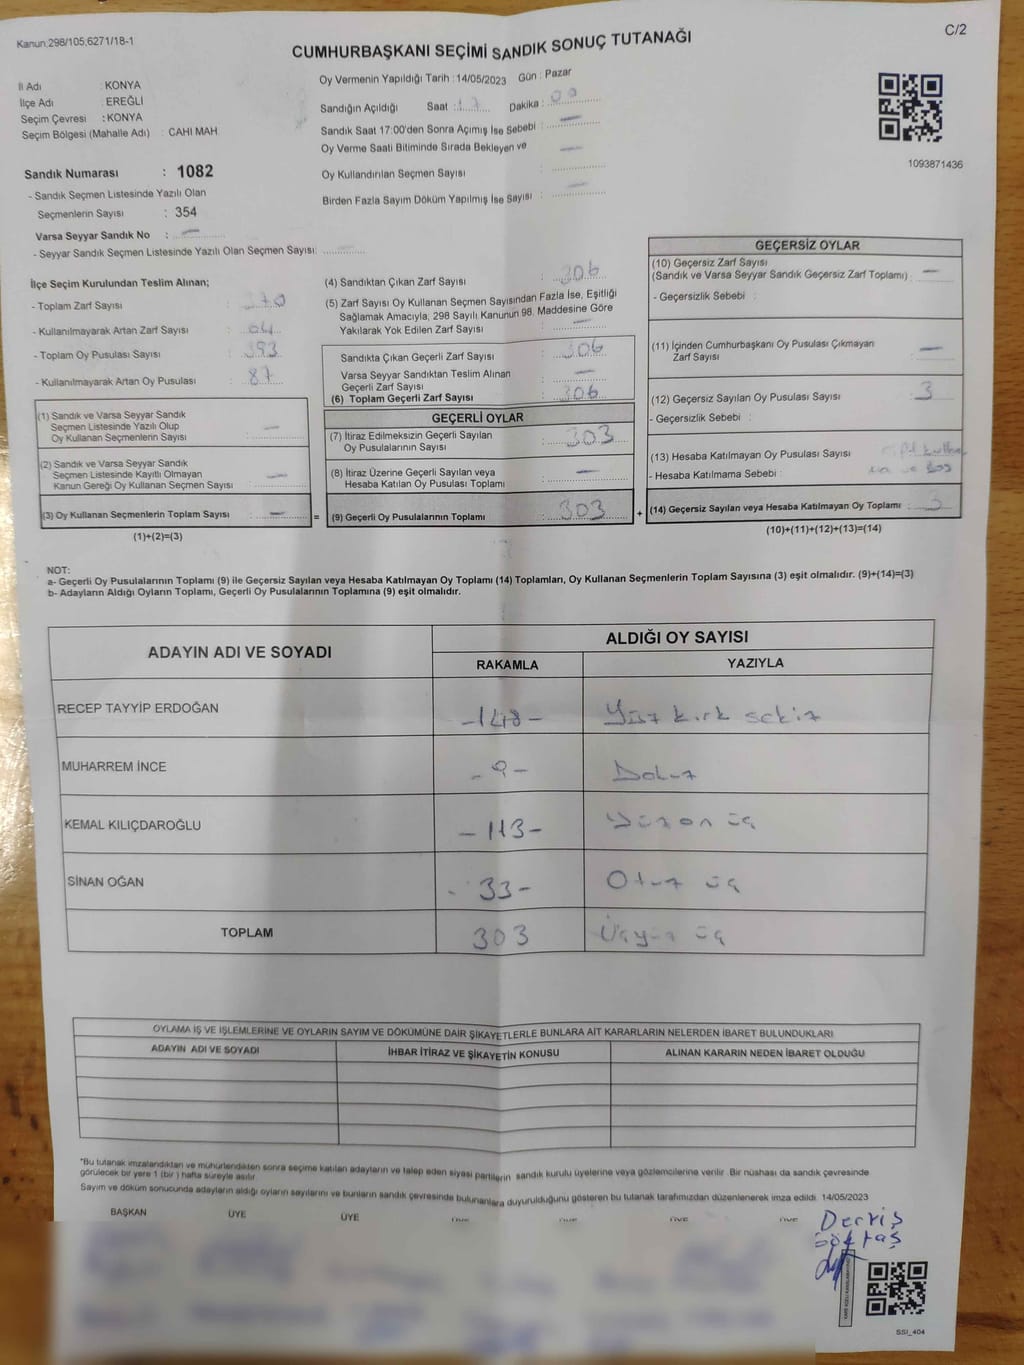 Kanun,298/105,6271/18-1
C/2
CUMHURBAŞKANI SEÇİMİ SANDIK SONUÇ TUTANAĞI
İl Adı : KONYA
İlçe Adı : EREĞLİ
Seçim Çevresi : KONYA
Seçim Bölgesi (Mahalle Adı) : CAHI MAH
Sandık Numarası : 1082
- Sandık Seçmen Listesinde Yazılı Olan
Seçmenlerin Sayısı : 354
Varsa Seyyar Sandık No : —
- Seyyar Sandık Seçmen Listesinde Yazılı Olan Seçmen Sayısı: —
Oy Vermenin Yapıldığı Tarih : 14/05/2023 Gün : Pazar
Sandığın Açıldığı Saat : 17 Dakika : 00
Sandık Saat 17:00'den Sonra Açımış İse Sebebi : —
Oy Verme Saati Bitiminde Sırada Bekleyen ve —
Oy Kullandırılan Seçmen Sayısı
Birden Fazla Sayım Döküm Yapılmış İse Sayısı : —
1093871436
İlçe Seçim Kurulundan Teslim Alınan;
- Toplam Zarf Sayısı : 370
- Kullanılmayarak Artan Zarf Sayısı : 64
- Toplam Oy Pusulası Sayısı : 393
- Kullanılmayarak Artan Oy Pusulası : 87
(1) Sandık ve Varsa Seyyar Sandık
Seçmen Listesinde Yazılı Olup
Oy Kullanan Seçmenlerin Sayısı : —
(2) Sandık ve Varsa Seyyar Sandık
Seçmen Listesinde Kayıtlı Olmayan
Kanun Gereği Oy Kullanan Seçmen Sayısı : —
(3) Oy Kullanan Seçmenlerin Toplam Sayısı : — =
(1)+(2)=(3)
(4) Sandıktan Çıkan Zarf Sayısı : 306
(5) Zarf Sayısı Oy Kullanan Seçmen Sayısından Fazla İse, Eşitliği
Sağlamak Amacıyla, 298 Sayılı Kanunun 98. Maddesine Göre
Yakılarak Yok Edilen Zarf Sayısı : —
Sandıkta Çıkan Geçerli Zarf Sayısı : 306
Varsa Seyyar Sandıktan Teslim Alınan
Geçerli Zarf Sayısı : —
(6) Toplam Geçerli Zarf Sayısı : 306
GEÇERLİ OYLAR
(7) İtiraz Edilmeksizin Geçerli Sayılan
Oy Pusulalarının Sayısı : 303
(8) İtiraz Üzerine Geçerli Sayılan veya
Hesaba Katılan Oy Pusulası Toplamı : —
(9) Geçerli Oy Pusulalarının Toplamı : 303 +
GEÇERSİZ OYLAR
(10) Geçersiz Zarf Sayısı
(Sandık ve Varsa Seyyar Sandık Geçersiz Zarf Toplamı) : —
- Geçersizlik Sebebi :
(11) İçinden Cumhurbaşkanı Oy Pusulası Çıkmayan
Zarf Sayısı : —
(12) Geçersiz Sayılan Oy Pusulası Sayısı : 3
- Geçersizlik Sebebi :
(13) Hesaba Katılmayan Oy Pusulası Sayısı :
- Hesaba Katılmama Sebebi : ve Boş
(14) Geçersiz Sayılan veya Hesaba Katılmayan Oy Toplamı : 3
(10)+(11)+(12)+(13)=(14)
NOT:
a- Geçerli Oy Pusulalarının Toplamı (9) ile Geçersiz Sayılan veya Hesaba Katılmayan Oy Toplamı (14) Toplamları, Oy Kullanan Seçmenlerin Toplam Sayısına (3) eşit olmalıdır. (9)+(14)=(3)
b- Adayların Aldığı Oyların Toplamı, Geçerli Oy Pusulalarının Toplamına (9) eşit olmalıdır.
ADAYIN ADI VE SOYADI
ALDIĞI OY SAYISI
RAKAMLA YAZIYLA
RECEP TAYYİP ERDOĞAN -148- Yüz kırk sekiz
MUHARREM İNCE -9- Dokuz
KEMAL KILIÇDAROĞLU -113- Yüz on üç
SİNAN OĞAN -33- Otuz üç
TOPLAM 303 Üçyüz üç
OYLAMA İŞ VE İŞLEMLERİNE VE OYLARIN SAYIM VE DÖKÜMÜNE DAİR ŞİKAYETLERLE BUNLARA AİT KARARLARIN NELERDEN İBARET BULUNDUKLARI
ADAYIN ADI VE SOYADI İHBAR İTİRAZ VE ŞİKAYETİN KONUSU ALINAN KARARIN NEDEN İBARET OLDUĞU
*Bu tutanak imzalandıktan ve mühürlendikten sonra seçime katılan adayların ve talep eden siyasi partilerin sandık kurulu üyelerine veya gözlemcilerine verilir. Bir nüshası da sandık çevresinde
görülecek bir yere 1 (bir) hafta süreyle asılır.
Sayım ve döküm sonucunda adayların aldığı oyların sayılarını ve bunların sandık çevresinde bulunanlara duyurulduğunu gösteren bu tutanak tarafımızdan düzenlenerek imza edildi. 14/05/2023
BAŞKAN ÜYE ÜYE ÜYE ÜYE ÜYE ÜYE
Derviş
Göktaş
SSI_404